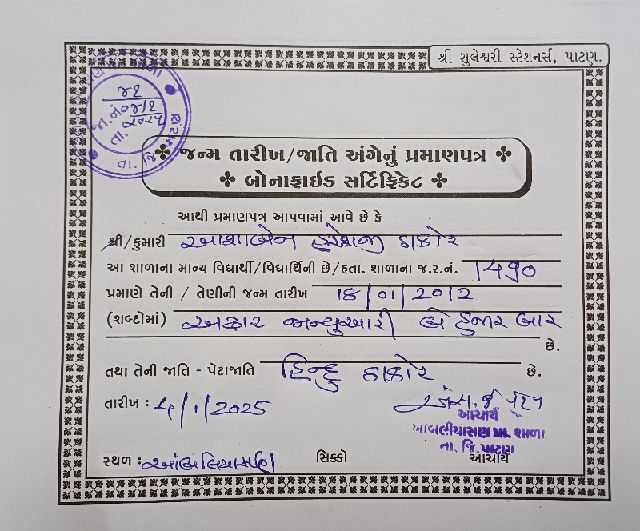 શ્રી ચુલેશ્વરી સ્ટેશનર્સ, પાટણ.
૪૧
તા. જિ
જન્મ તારીખ/જાતિ અંગેનું પ્રમાણપત્ર
બોનાફાઈડ સર્ટિફિકેટ
આથી પ્રમાણપત્ર આપવામાં આવે છે કે
શ્રી/કુમારી આશાબેન ઠાકોર
આ શાળાના માન્ય વિદ્યાર્થી/વિદ્યાર્થિની છે/હતા. શાળાના જ.ર.નં. 1490
પ્રમાણે તેની / તેણીની જન્મ તારીખ 18/01/2012
(શબ્દોમાં) અઢાર જાન્યુઆરી બે હજાર બાર
છે.
તથા તેની જાતિ - પેટાજાતિ હિન્દુ ઠાકોર છે.
તારીખ : 4/1/2025
આચાર્ય
આંબલીયાસણ પ્રા. શાળા
તા. જિ. પાટણ
સ્થળ : આંબલિયાસણ સિક્કો આચાર્ય